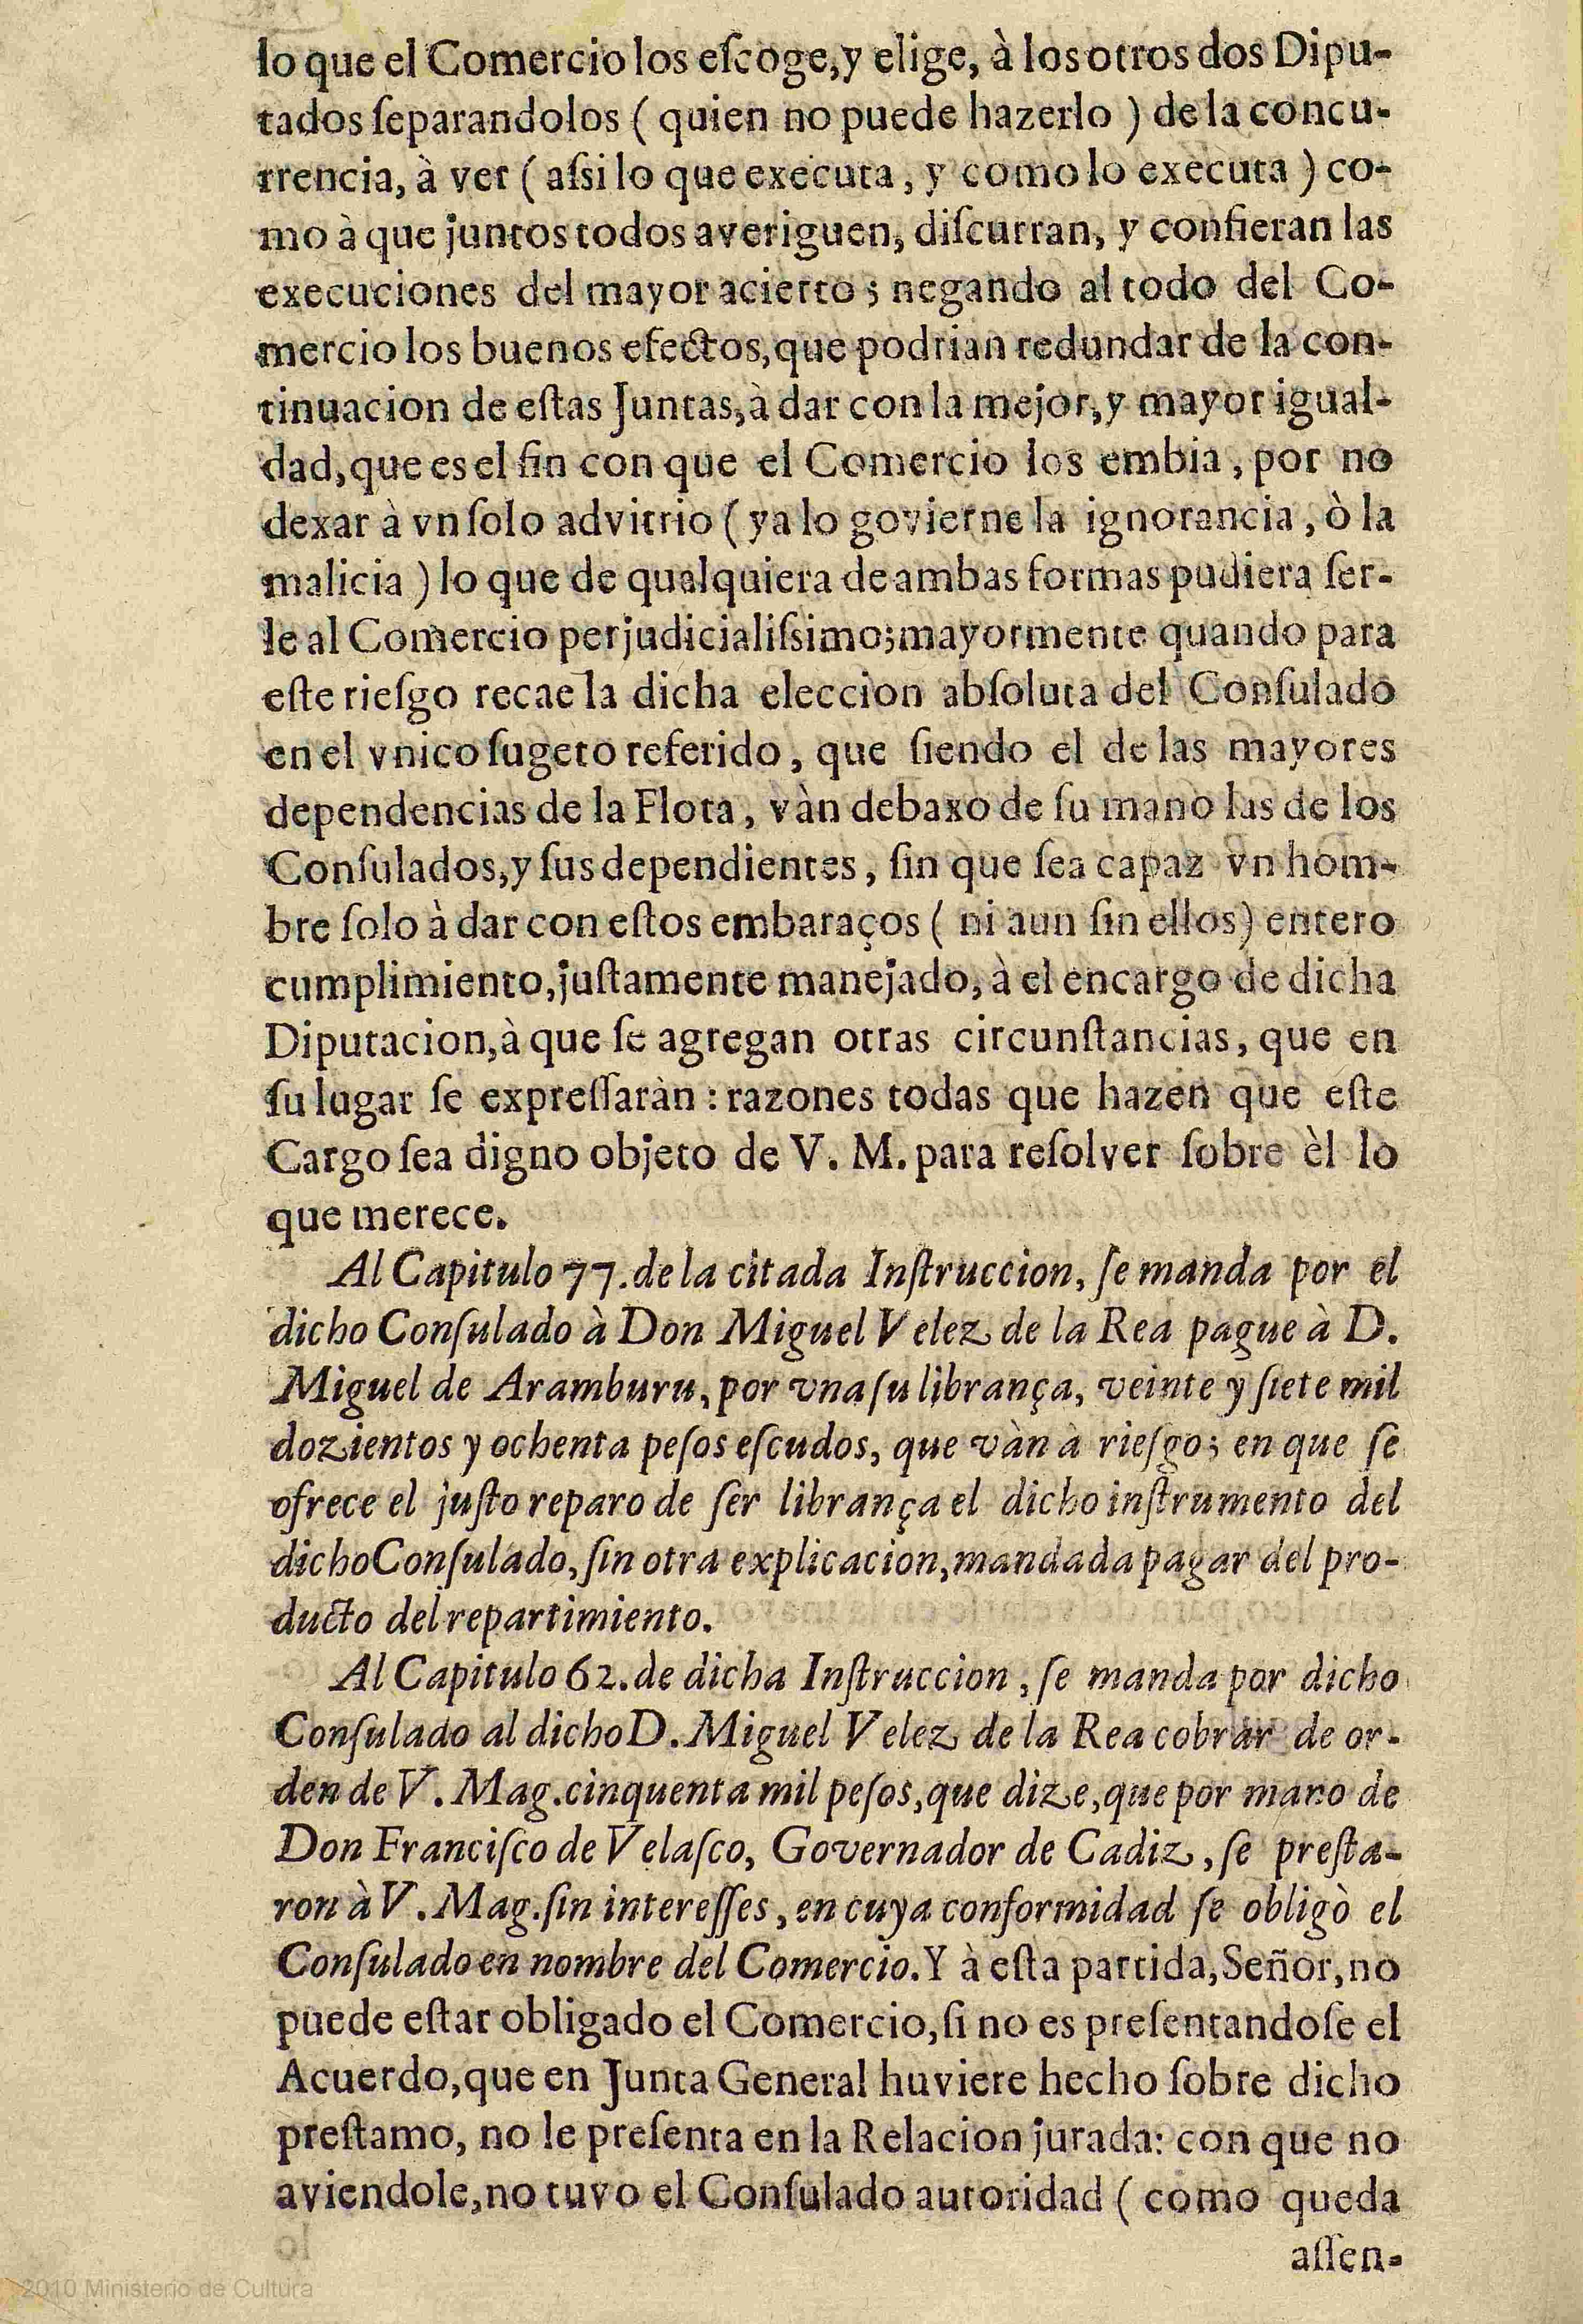 lo que el Comercio los eſcoge, y elige, à los otros dos Dipu-
tados ſeparandolos ( quien no puede hazerlo ) de la concu-
rrencia, à ver ( aſsi lo que executa, y como lo executa ) co-
mo à que juntos todos averiguen, diſcurran, y confieran las
execuciones del mayor acierto; negando al todo del Co-
mercio los buenos efectos, que podrian redundar de la con-
tinuacion de eſtas Juntas, à dar con la mejor, y mayor igual-
dad, que es el fin con que el Comercio los embia, por no
dexar à vn ſolo advitrio ( ya lo govierne la ignorancia, ò la
malicia ) lo que de qualquiera de ambas formas pudiera ſer-
le al Comercio perjudicialiſsimo; mayormente quando para
eſte rieſgo recae la dicha eleccion abſoluta del Conſulado
en el vnico ſugeto referido, que ſiendo el de las mayores
dependencias de la Flota, vàn debaxo de ſu mano las de los
Conſulados, y ſus dependientes, ſin que ſea capaz vn hom-
bre ſolo à dar con eſtos embaraços ( ni aun ſin ellos) entero
cumplimiento, juſtamente manejado, à el encargo de dicha
Diputacion, à que ſe agregan otras circunſtancias, que en
ſu lugar ſe expreſſaràn : razones todas que hazen que eſte
Cargo ſea digno objeto de V. M. para reſolver ſobre èl lo
que merece.
Al Capitulo 77. de la citada Inſtruccion, ſe manda por el
dicho Conſulado à Don Miguel Velez de la Rea pague à D.
Miguel de Aramburu, por vna ſu librança, veinte y ſiete mil
dozientos y ochenta peſos eſcudos, que vàn à rieſgo; en que ſe
ofrece el juſto reparo de ſer librança el dicho inſtrumento del
dicho Conſulado, ſin otra explicacion, mandada pagar del pro-
ducto del repartimiento.
Al Capitulo 62. de dicha Inſtruccion, ſe manda por dicho
Conſulado al dicho D. Miguel Velez de la Rea cobrar de or-
den de V. Mag. cinquenta mil peſos, que dize, que por mano de
Don Franciſco de Velaſco, Governador de Cadiz, ſe preſta-
ron à V. Mag. ſin intereſſes, en cuya conformidad ſe obligò el
Conſulado en nombre del Comercio. Y à eſta partida, Señor, no
puede eſtar obligado el Comercio, ſi no es preſentandoſe el
Acuerdo, que en Junta General huviere hecho ſobre dicho
preſtamo, no le preſenta en la Relacion jurada: con que no
aviendole, no tuvo el Conſulado autoridad ( como queda
aſſen-
2010 Ministerio de Cultura